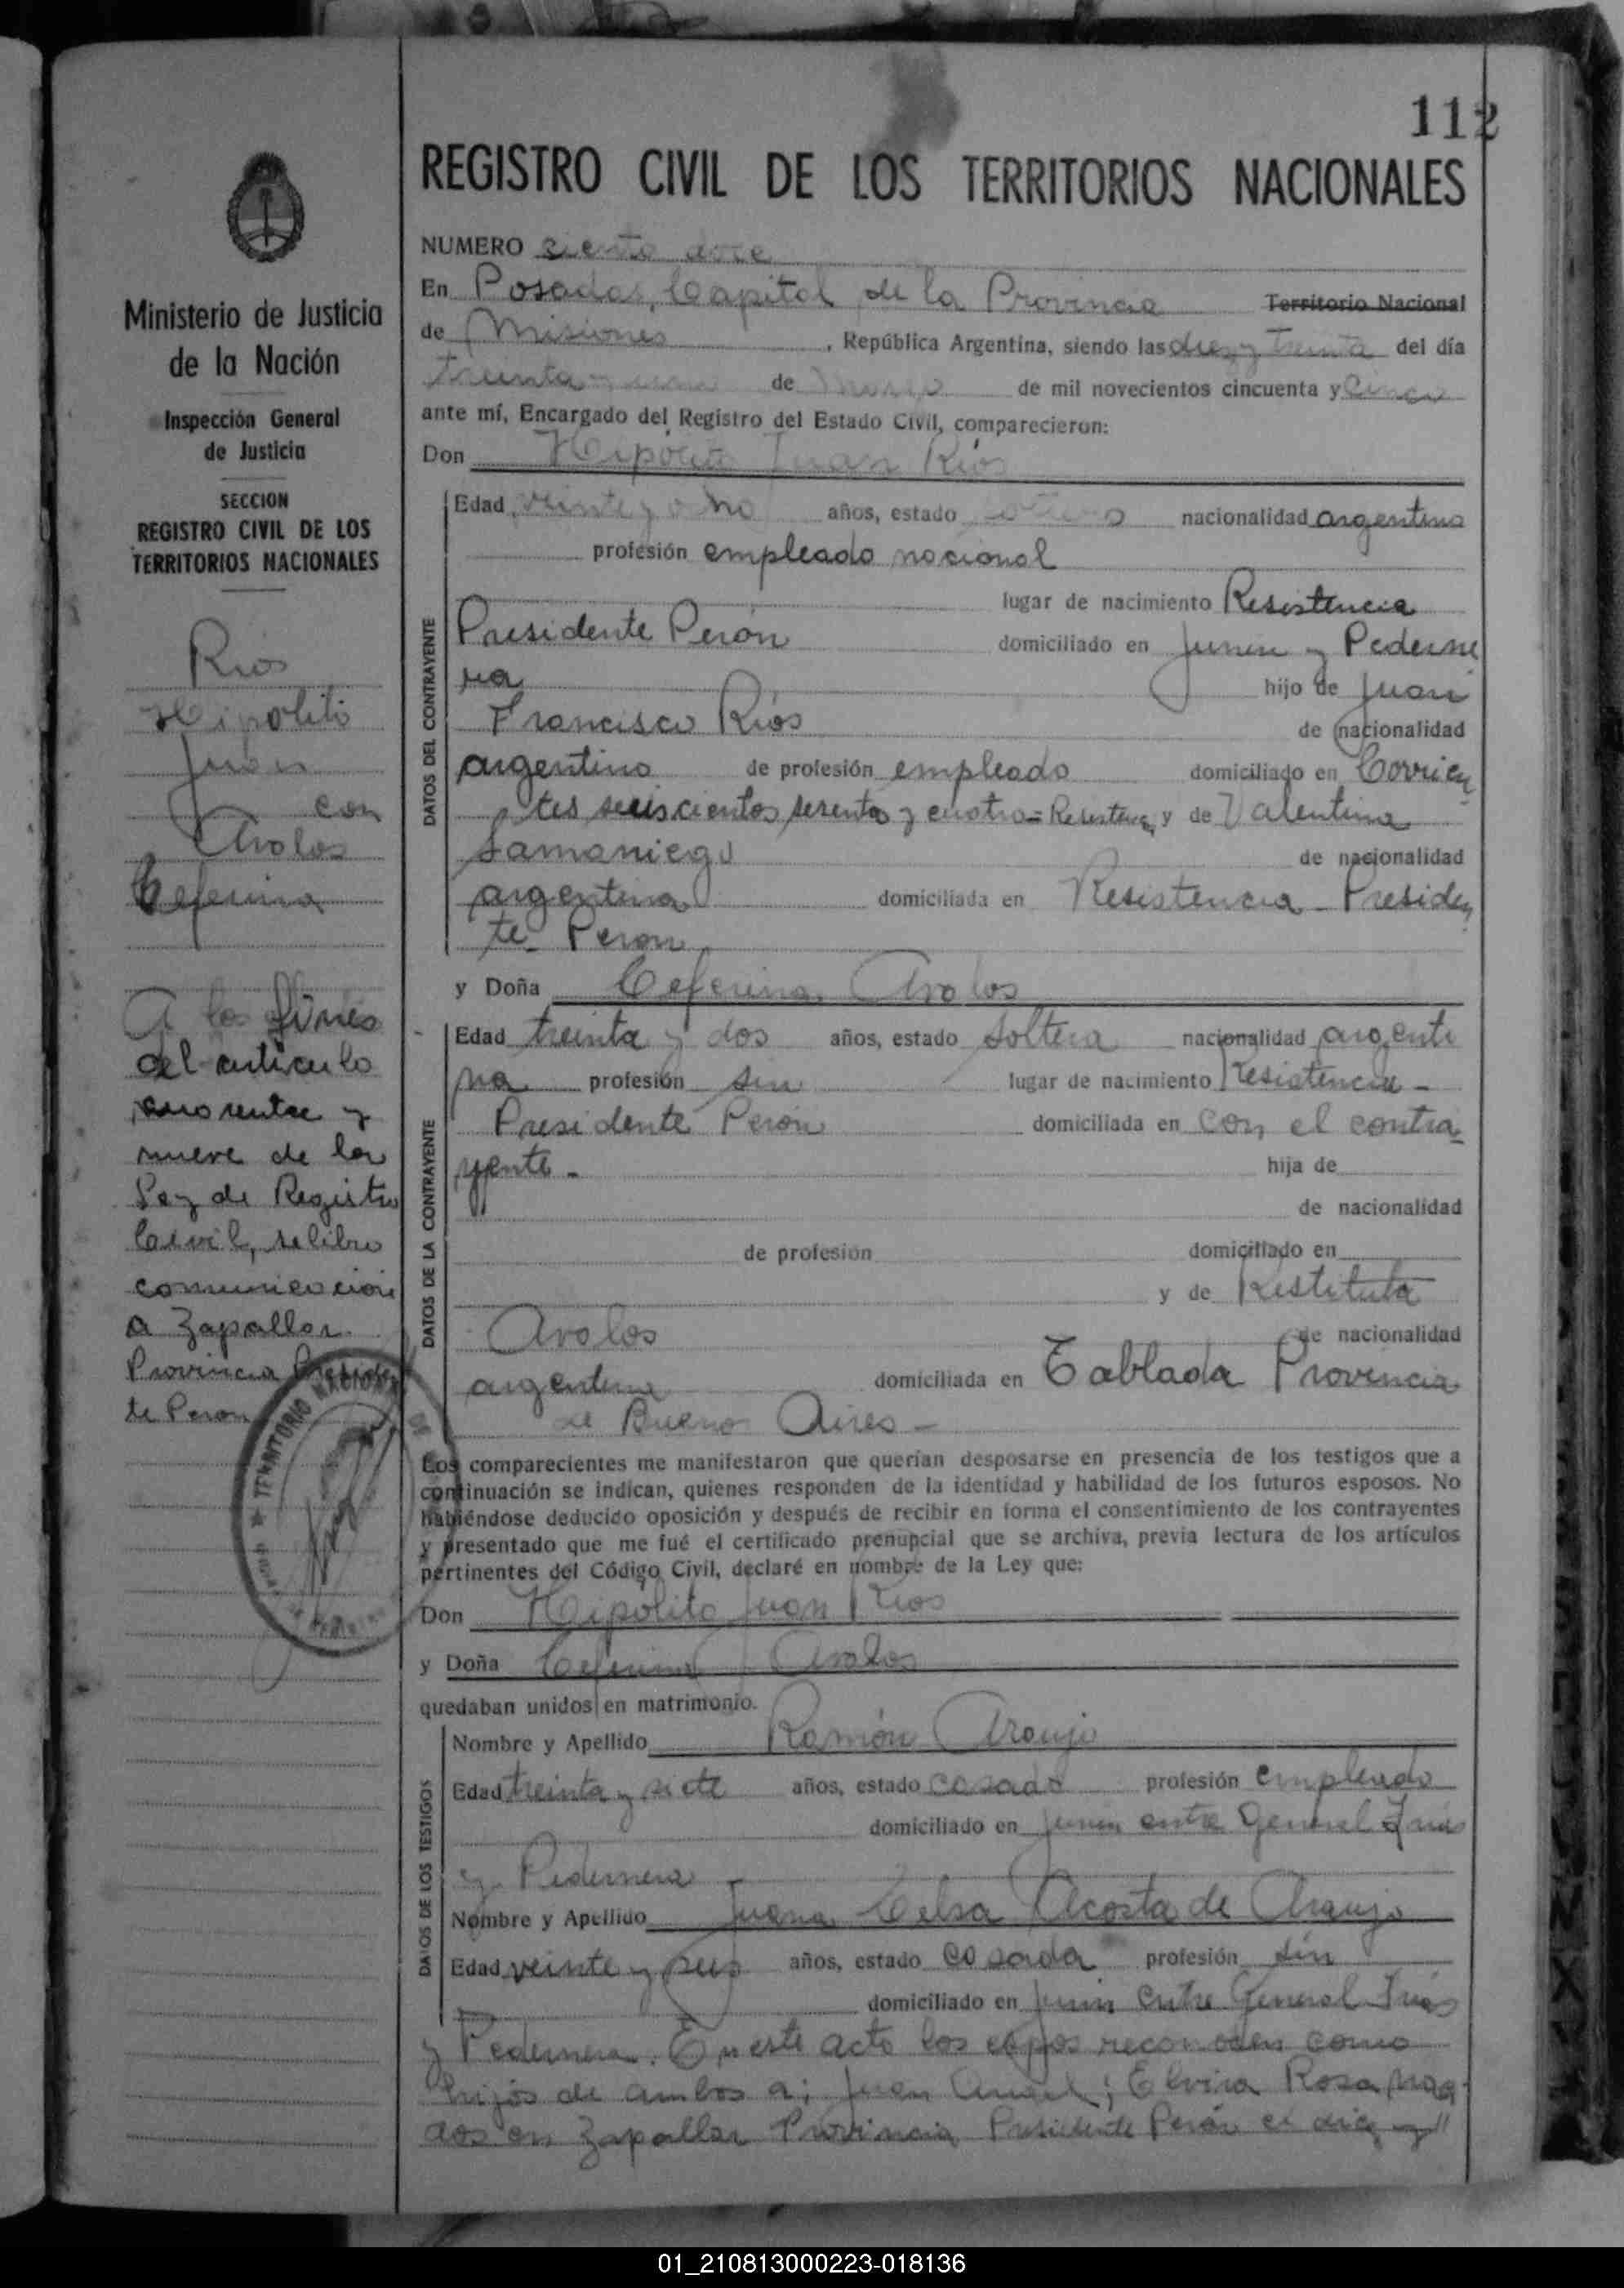 112
REGISTRO CIVIL DE LOS TERRITORIOS NACIONALES
Ministerio de Justicia
de la Nación
Inspección General
de Justicia
SECCION
REGISTRO CIVIL DE LOS
TERRITORIOS NACIONALES
Rios
Hipolito
Juan
con
Avalos
Ceferina
A los fines
del articulo
cuarenta y
nueve de la
Ley de Registro
Civil, se libro
comunicacion
a Zapallar
Provincia Presiden
te Peron
NUMERO ciento doce
En Posadas, Capital de la Provincia Territorio Nacional
de Misiones, República Argentina, siendo las diez y treinta del día
treinta y uno de de mil novecientos cincuenta y cinco
ante mí, Encargado del Registro del Estado Civil, comparecieron:
Don Hipólito Juan Ríos
DATOS DEL CONTRAYENTE
Edad veinte y ocho años, estado soltero nacionalidad argentina
profesión empleado nacional
lugar de nacimiento Resistencia
Presidente Perón domiciliado en Junin y Pederne
ra hijo de Juan
Francisco Ríos de nacionalidad
argentino de profesión empleado domiciliado en Corrien
tes seiscientos sesenta y cuatro = Resistencia y de Valentina
Samaniego de nacionalidad
argentina domiciliada en Resistencia - Presiden
te Peron
y Doña Ceferina Avalos
DATOS DE LA CONTRAYENTE
Edad treinta y dos años, estado soltera nacionalidad argenti
na profesión sin lugar de nacimiento Resistencia -
Presidente Perón domiciliada en con el contra
yente - hija de
de nacionalidad
de profesión domiciliado en
y de Restituta
Avalos de nacionalidad
argentina domiciliada en Tablada Provincia
de Buenos Aires -
Los comparecientes me manifestaron que querían desposarse en presencia de los testigos que a
continuación se indican, quienes responden de la identidad y habilidad de los futuros esposos. No
habiéndose deducido oposición y después de recibir en forma el consentimiento de los contrayentes
y presentado que me fué el certificado prenupcial que se archiva, previa lectura de los artículos
pertinentes del Código Civil, declaré en nombre de la Ley que:
Don Hipólito Juan Rios
y Doña Ceferina Avalos
quedaban unidos en matrimonio.
DATOS DE LOS TESTIGOS
Nombre y Apellido Ramón Araujo
Edad treinta y siete años, estado casado profesión empleado
domiciliado en Junin entre General Frias
y Pedernera
Nombre y Apellido Juana Celsa Acosta de Araujo
Edad veinte y seis años, estado casada profesión sin
domiciliado en Junin entre General Frias
y Pedernera. En este acto los espos reconocen como
hijos de ambos a; Juan Angel; Elvira Rosa, naci
dos en Zapallar Provincia Presidente Perón el diez y"
TERRITORIO NACIONAL DE
01_210813000223-018136